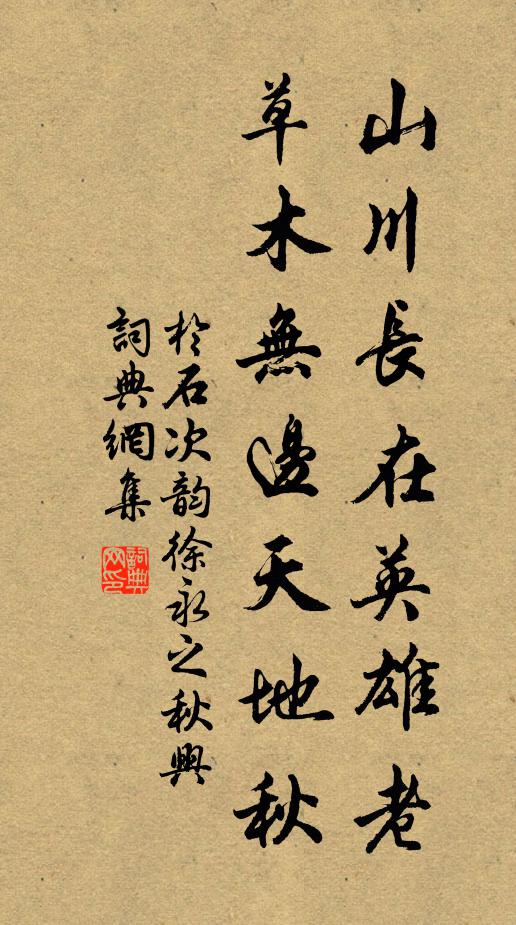 山川長在英雄老
草木無邊天地秋
於石次韵徐永之秋興
詞典網集
詞典網印